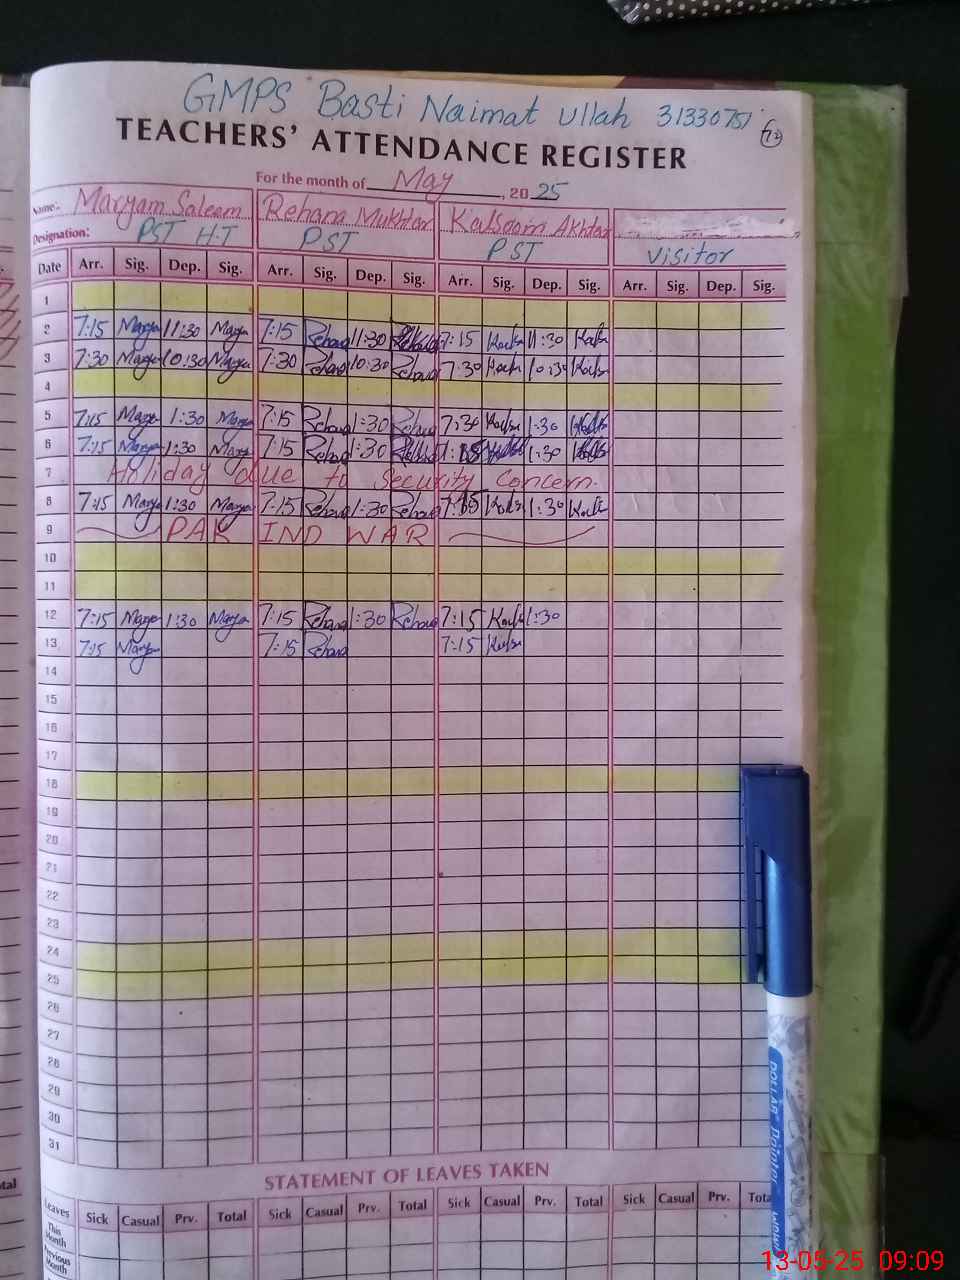 GMPS Basti Naimat ullah 31330751
TEACHERS' ATTENDANCE REGISTER
For the month of May, 2025
Name: Maryam Saleem Rehana Mukhtar Kalsoom Akhtar
Designation: PST H.T PST PST Visitor
Date Arr. Sig. Dep. Sig. Arr. Sig. Dep. Sig. Arr. Sig. Dep. Sig. Arr. Sig. Dep. Sig.
1
2 7:15 11:30 7:15 Rehana 11:30 7:15 11:30
3 7:30 10:30 7:30 Rehana 10:30 Rehana 7:30 10:30
4
5 7:15 1:30 7:15 Rehana 1:30 Rehana 7:30 1:30
6 7:15 1:30 7:15 Rehana 1:30 1:30
7 Holiday due to Security Concern.
8 7:15 1:30 7:15 Rehana 1:30 Rehana 1:30
9 PAK IND WAR
10
11
12 7:15 1:30 7:15 Rehana 1:30 Rehana 7:15 1:30
13 7:15 7:15 Rehana 7:15
14
15
16
17
18
19
20
21
22
23
24
25
26
27
28
29
30
31
STATEMENT OF LEAVES TAKEN
Leaves Sick Casual Prv. Total Sick Casual Prv. Total Sick Casual Prv. Total Sick Casual Prv. Tota
This Month
Previous Month
DOLLAR Pointer
13-05-25 09:09